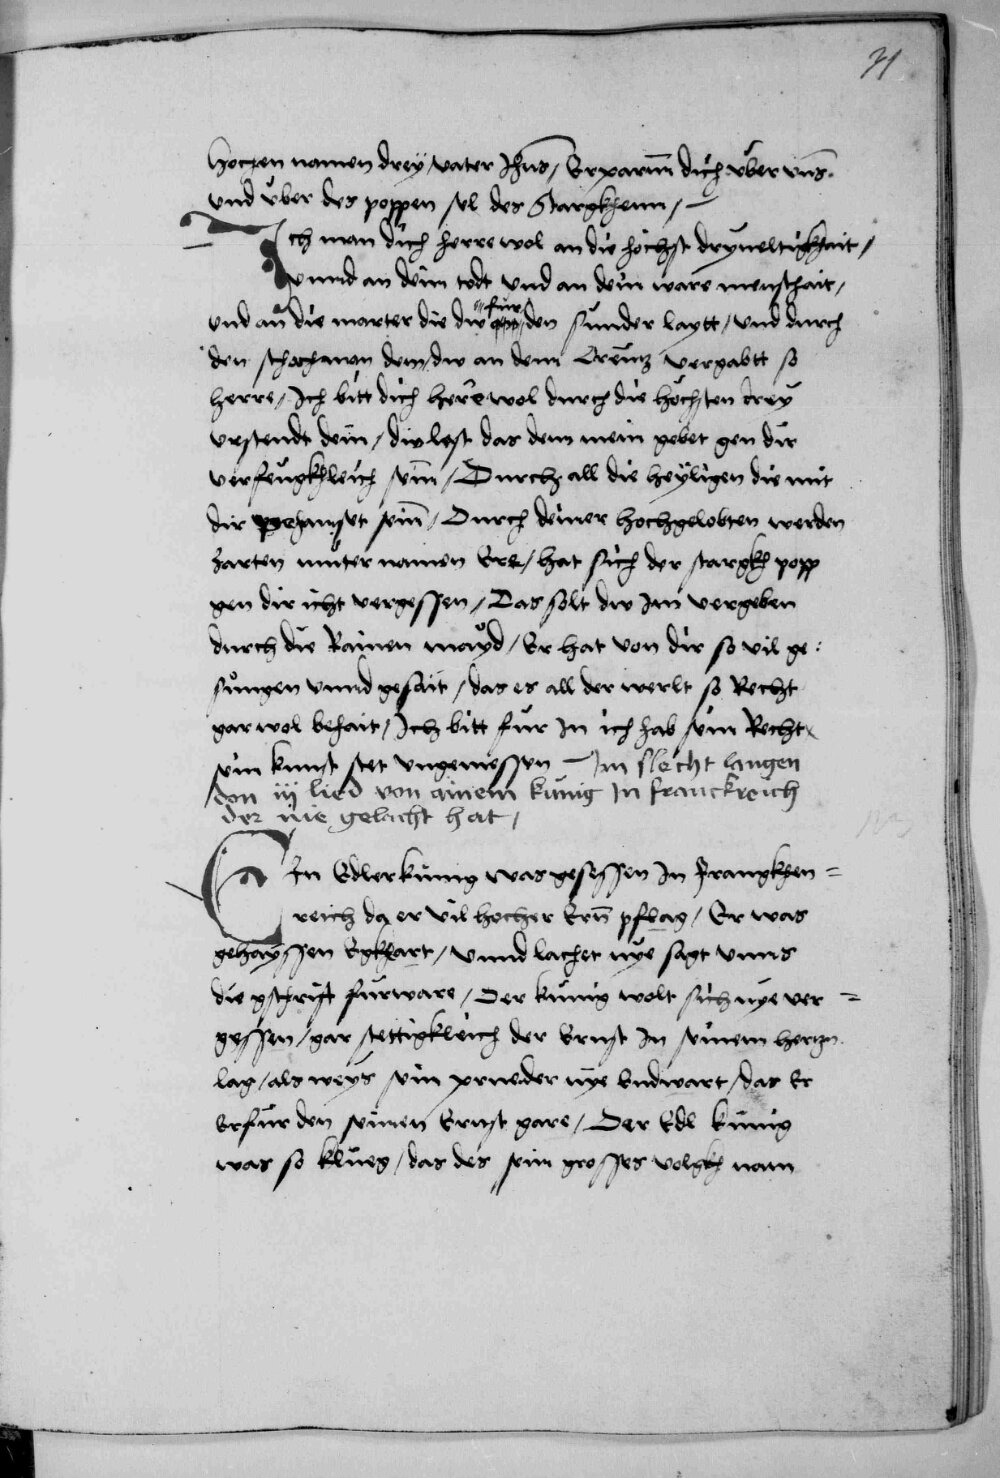 71
hochen namen drey / vater Jhūs / Erparm̄ dich vber vnns
vnd vber des poppen sel des Starckhenn /
Ich man dich herre wol an die hochst dryueltigkhait /
vnnd an dein todt vnd an dein ware menschait /
vnd an die marter die dw für den sunder laytt / vnd durch
den schachman dem dw an dem Creutz vergabtt so
herre / Ich bitt dich herre wol durch die hochsten drey
vrstendt dein / dw lest das dem mein gebet gen dir
verfengkhleich sein / Durch all die heyligen die mit
dir sein / Durch deiner hochgelobten werden
zarten muter namen Ere / hat sich der starckh popp
gen dir icht vergessen / Das solt dw Im vergeben
durch die Rainen mayd / Er hat von dir so vil ge:
sungen vnnd gesait / das es all der werlt so Recht
gar wol behait / Ich bitt fur In ich hab sein Recht
sein kunst stet vngemessen — Im slecht langen
don iij lied von ainem kunig In franckreich
der nie gelacht hat /
EIn Edler kunig was gesessen In Franngkhen =
reich da er vil hocher Ern̄ pflag / Er was
gehayssen Egkhart / vnnd lachet nye sagt vnns
die gschrift furware / Der kunig wolt sich nye ver =
gessen / gar stettigkleich der Ernst In seinem hertzn
lag / als weys sein prueder nye Endwart / das Er
Erfur den seinen Ernst gare / Der Edl kunig
was so klueg / das des sein grosses volgkh nam